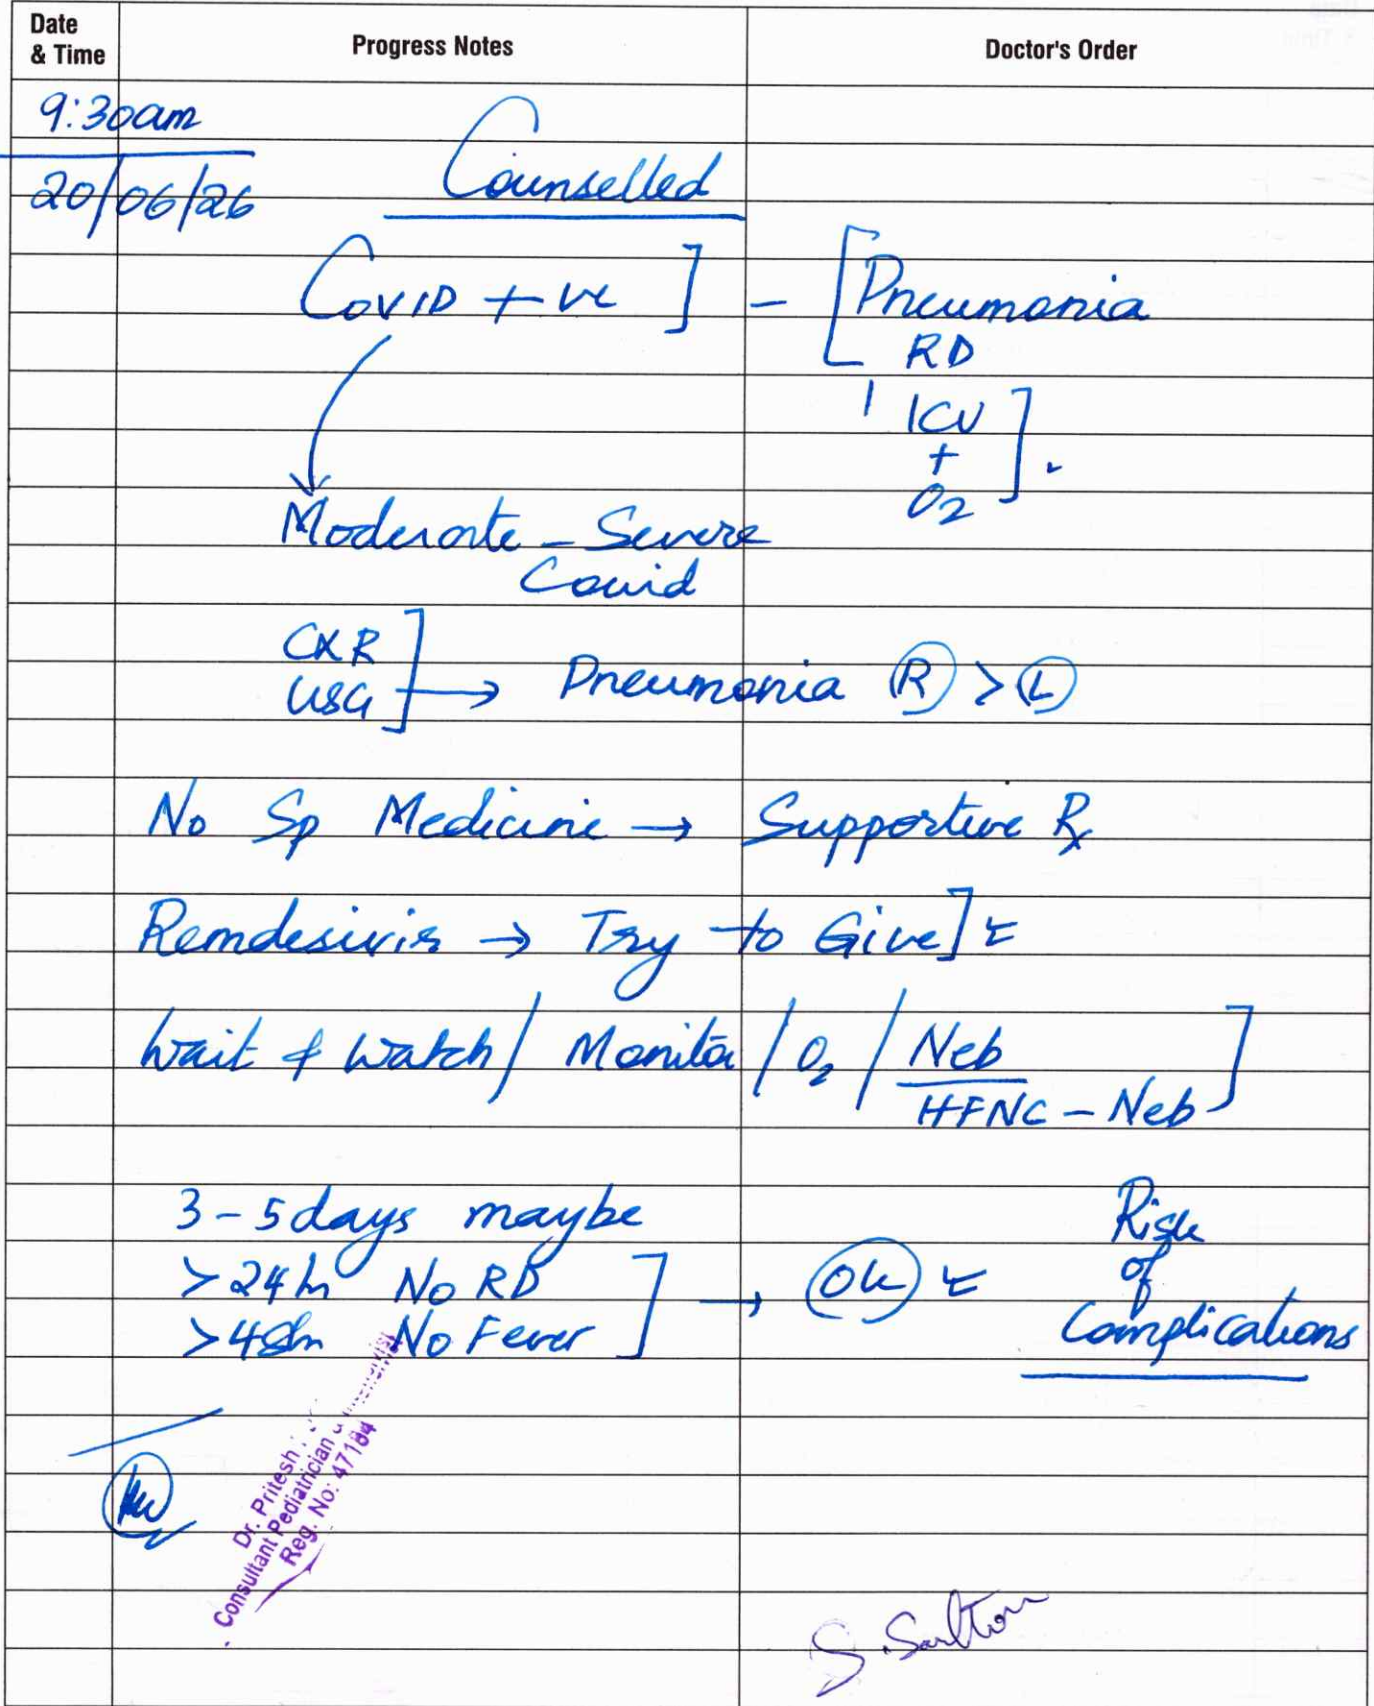 Date & Time
Progress Notes
Doctor's Order
9:30am
20/06/26
Counselled
Covid +ve ] - [Pneumonia
RD
ICU
+
O2 ]
Moderate - Severe
Covid
CXR
USG ] → Pneumonia (R) > (L)
No Sp Medicine → Supportive Rx
Remdesivir → Try to Give]
Wait & Watch / Monitor / O2 / Neb
HFNC - Neb ]
3-5 days maybe
>24h No RD
>48h No Fever ] → OK
Risk
of
Complications
Dr. Pritesh
Consultant Pediatrician &
Reg. No: 47184